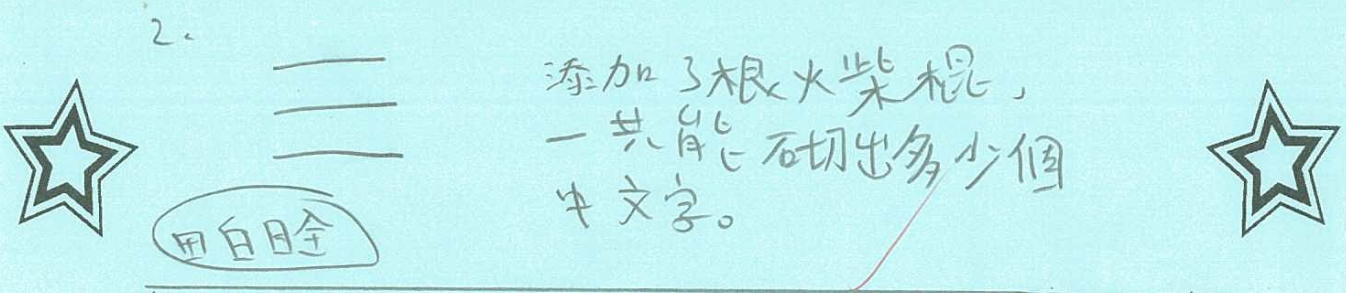 2.
三
添加3根火柴棍,
一共能砌出多少個
中文字。
田白日全